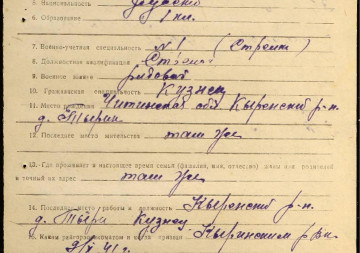 5. Национальность русский
6. Образование 1 кл.
7. Военно-учетная специальность № 1 (Стрелки)
8. Должностная квалификация Стрелок
9. Военное звание рядовой
10. Гражданская специальность Кузнец
11. Место рождения Читинская обл Кыренский р-н.
д. Тырин
12. Последнее место жительства там же
13. Где проживает в настоящее время семья (фамилия, имя, отчество) жены или родителей
и точный их адрес там же
14. Последнее место работы и должность Кыренский р-н.
д. Тыри Кузнец
15. Каким райгорвоенкоматом и когда призван Кыринским рвк.
9/X 41 г.